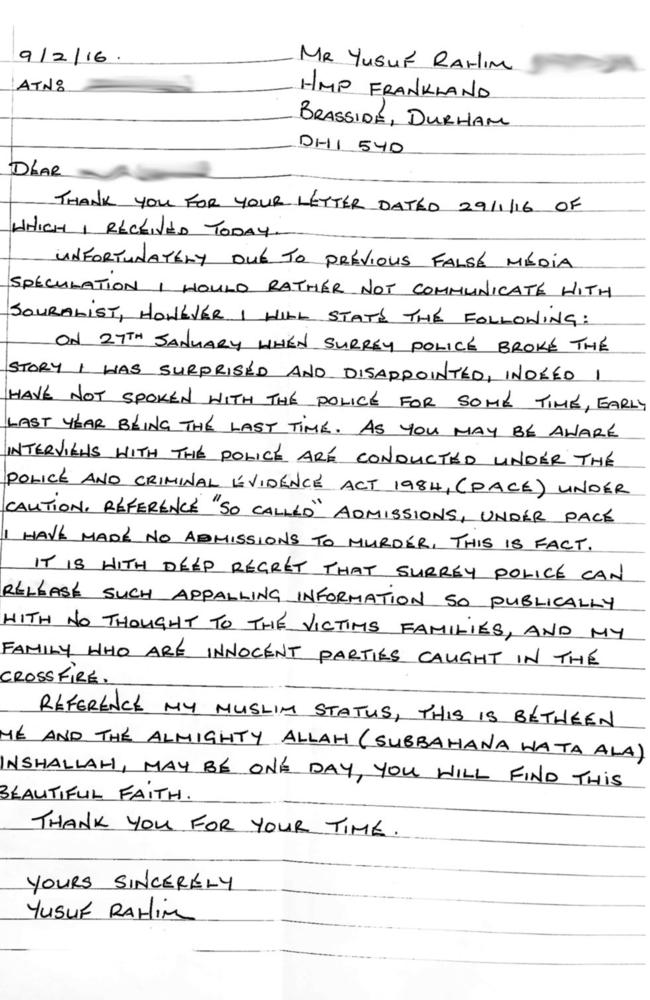 9/2/16.
MR YUSUF RAHIM
ATN:
HMP FRANKLAND
BRASSIDE, DURHAM
DH1 5YD
DEAR
THANK YOU FOR YOUR LETTER DATED 29/1/16 OF
WHICH I RECEIVED TODAY.
UNFORTUNATELY DUE TO PREVIOUS FALSE MEDIA
SPECULATION I WOULD RATHER NOT COMMUNICATE WITH
JOURALIST, HOWEVER I WILL STATE THE FOLLOWING:
ON 27TH JANUARY WHEN SURREY POLICE BROKE THE
STORY I WAS SURPRISED AND DISAPPOINTED, INDEED I
HAVE NOT SPOKEN WITH THE POLICE FOR SOME TIME, EARLY
LAST YEAR BEING THE LAST TIME. AS YOU MAY BE AWARE
INTERVIEWS WITH THE POLICE ARE CONDUCTED UNDER THE
POLICE AND CRIMINAL EVIDENCE ACT 1984, (PACE) UNDER
CAUTION. REFERENCE "SO CALLED" ADMISSIONS, UNDER PACE
I HAVE MADE NO ADMISSIONS TO MURDER. THIS IS FACT.
IT IS WITH DEEP REGRET THAT SURREY POLICE CAN
RELEASE SUCH APPALLING INFORMATION SO PUBLICALLY
WITH NO THOUGHT TO THE VICTIMS FAMILIES, AND MY
FAMILY WHO ARE INNOCENT PARTIES CAUGHT IN THE
CROSSFIRE.
REFERENCE MY MUSLIM STATUS, THIS IS BETWEEN
ME AND THE ALMIGHTY ALLAH (SUBBAHANA WATA ALA)
INSHALLAH, MAY BE ONE DAY, YOU WILL FIND THIS
BEAUTIFUL FAITH.
THANK YOU FOR YOUR TIME.
YOURS SINCERELY
YUSUF RAHIM